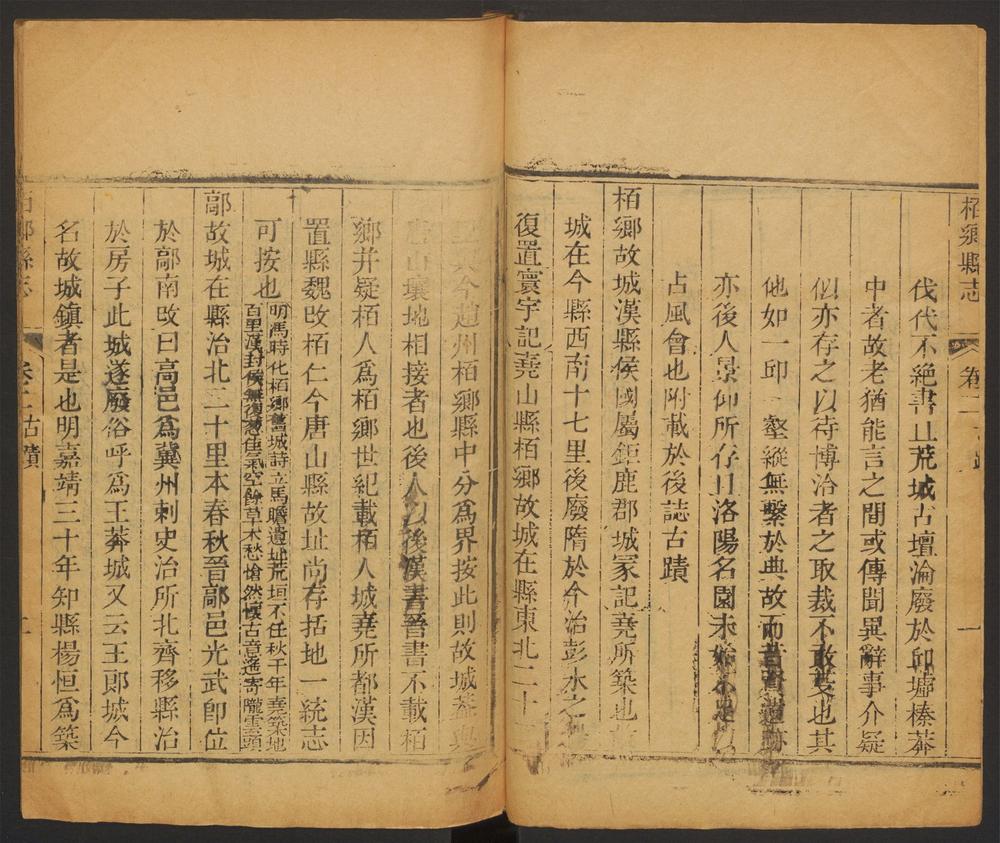 栢鄉縣志 卷二 一
伐代不絕書且荒城古壇淪廢於邱墟榛莽
中者故老猶能言之間或傳聞異辭事介疑
似亦存之以待博洽者之取裁不敢也其
他如一邱一壑縱無繫於典故而昔賢遺跡
亦後人景仰所存且洛陽名園未始不足以
占風會也附載於後誌古蹟
栢鄉故城漢縣侯國屬鉅鹿郡城冢記堯所築也
城在今縣西南十七里後廢隋於今治彭水之
復置寰宇記堯山縣栢鄉故城在縣東北二十
里與今趙州栢鄉縣中分為界按此則故城葢與
唐山壤地相接者也後人以後漢書晉書不載栢
鄉并疑栢人為栢鄉世紀載栢人城堯所都漢因
置縣魏改栢仁今唐山縣故址尚存括地一統志
可按也明馮時化栢鄉舊城詩立馬瞻遺址荒垣不任秋千年堯築地
百里漢封侯無復蔥佳氣空餘草木愁愴然懷古意遙寄隴雲頭
鄗故城在縣治北二十里本春秋晉鄗邑光武即位
於鄗南改曰高邑為冀州刺史治所北齊移縣治
於房子此城遂廢俗呼為王莽城又云王郎城今
名故城鎮者是也明嘉靖三十年知縣楊恒為築
栢鄉縣志 卷二古蹟 二